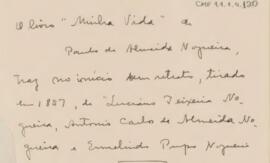 CMP 1.1.9.120
O livro "Minha Vida" de
Paulo de Almeida Nogueira,
traz no início um retrato, tirado
em 1887, de "Luciano Teixeira No-
gueira, Antonio Carlos de Almeida No-
gueira e Ermelindo Pupo Nogueira